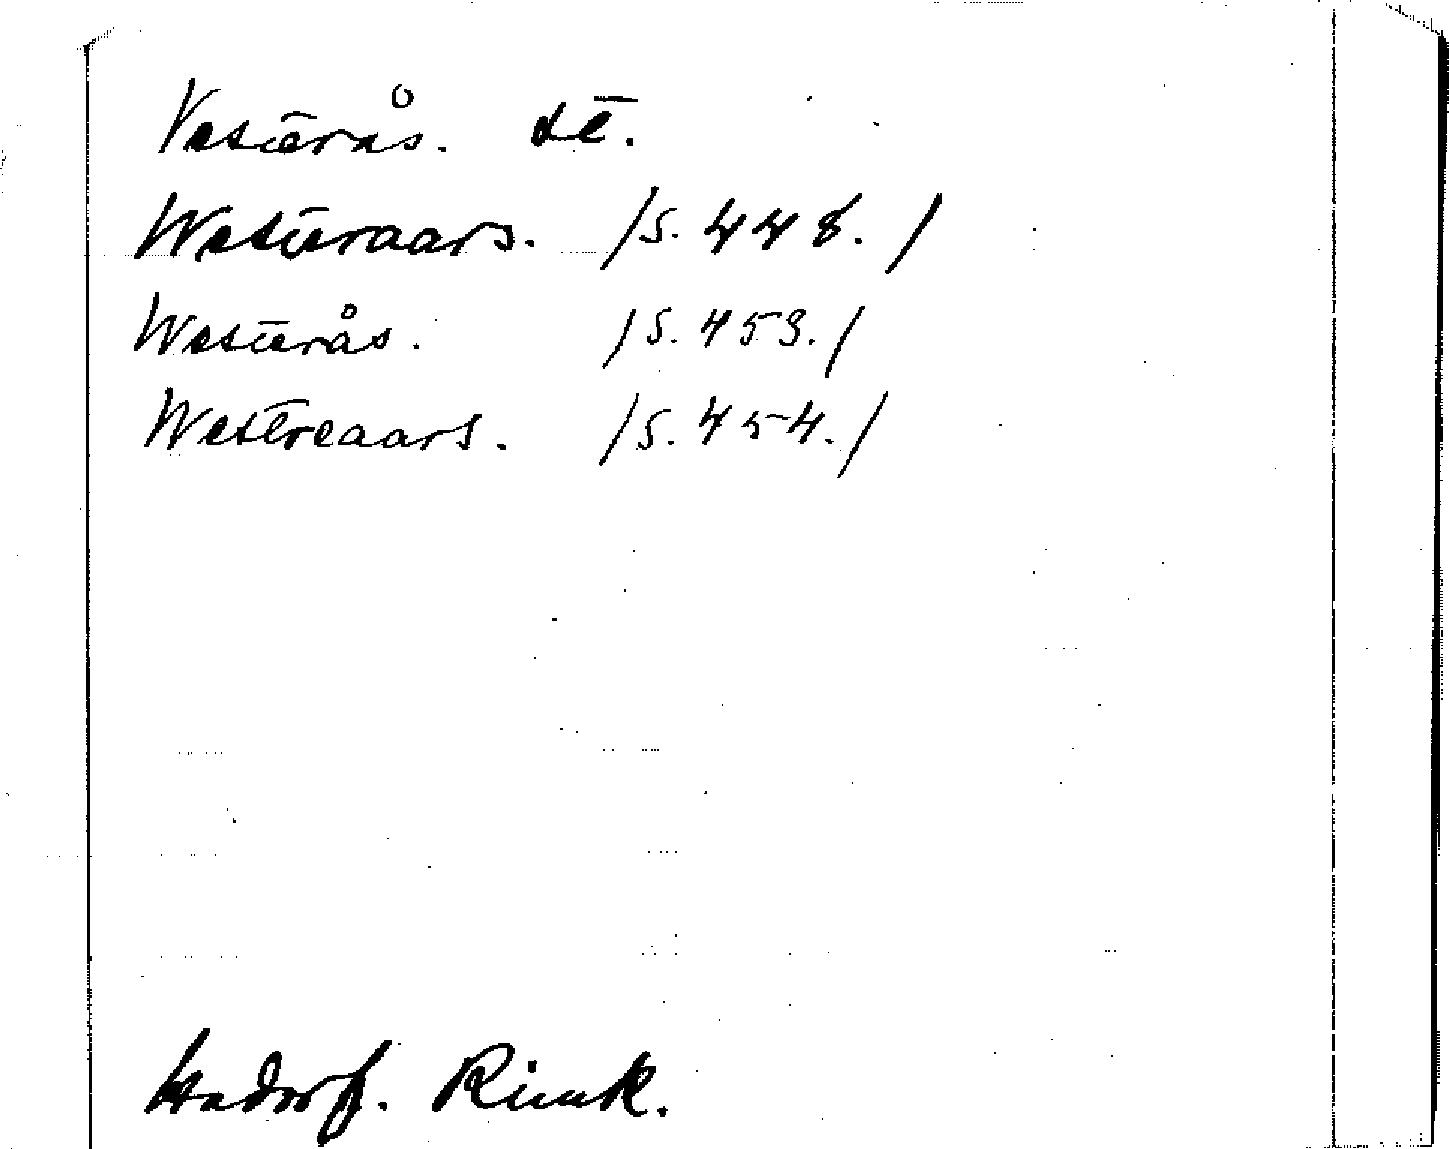 Västerås. st.
Wästeraars. /S. 448./
Wästerås. /S. 453./
Westreaars. /S. 454./
Hadorf. Rimk.